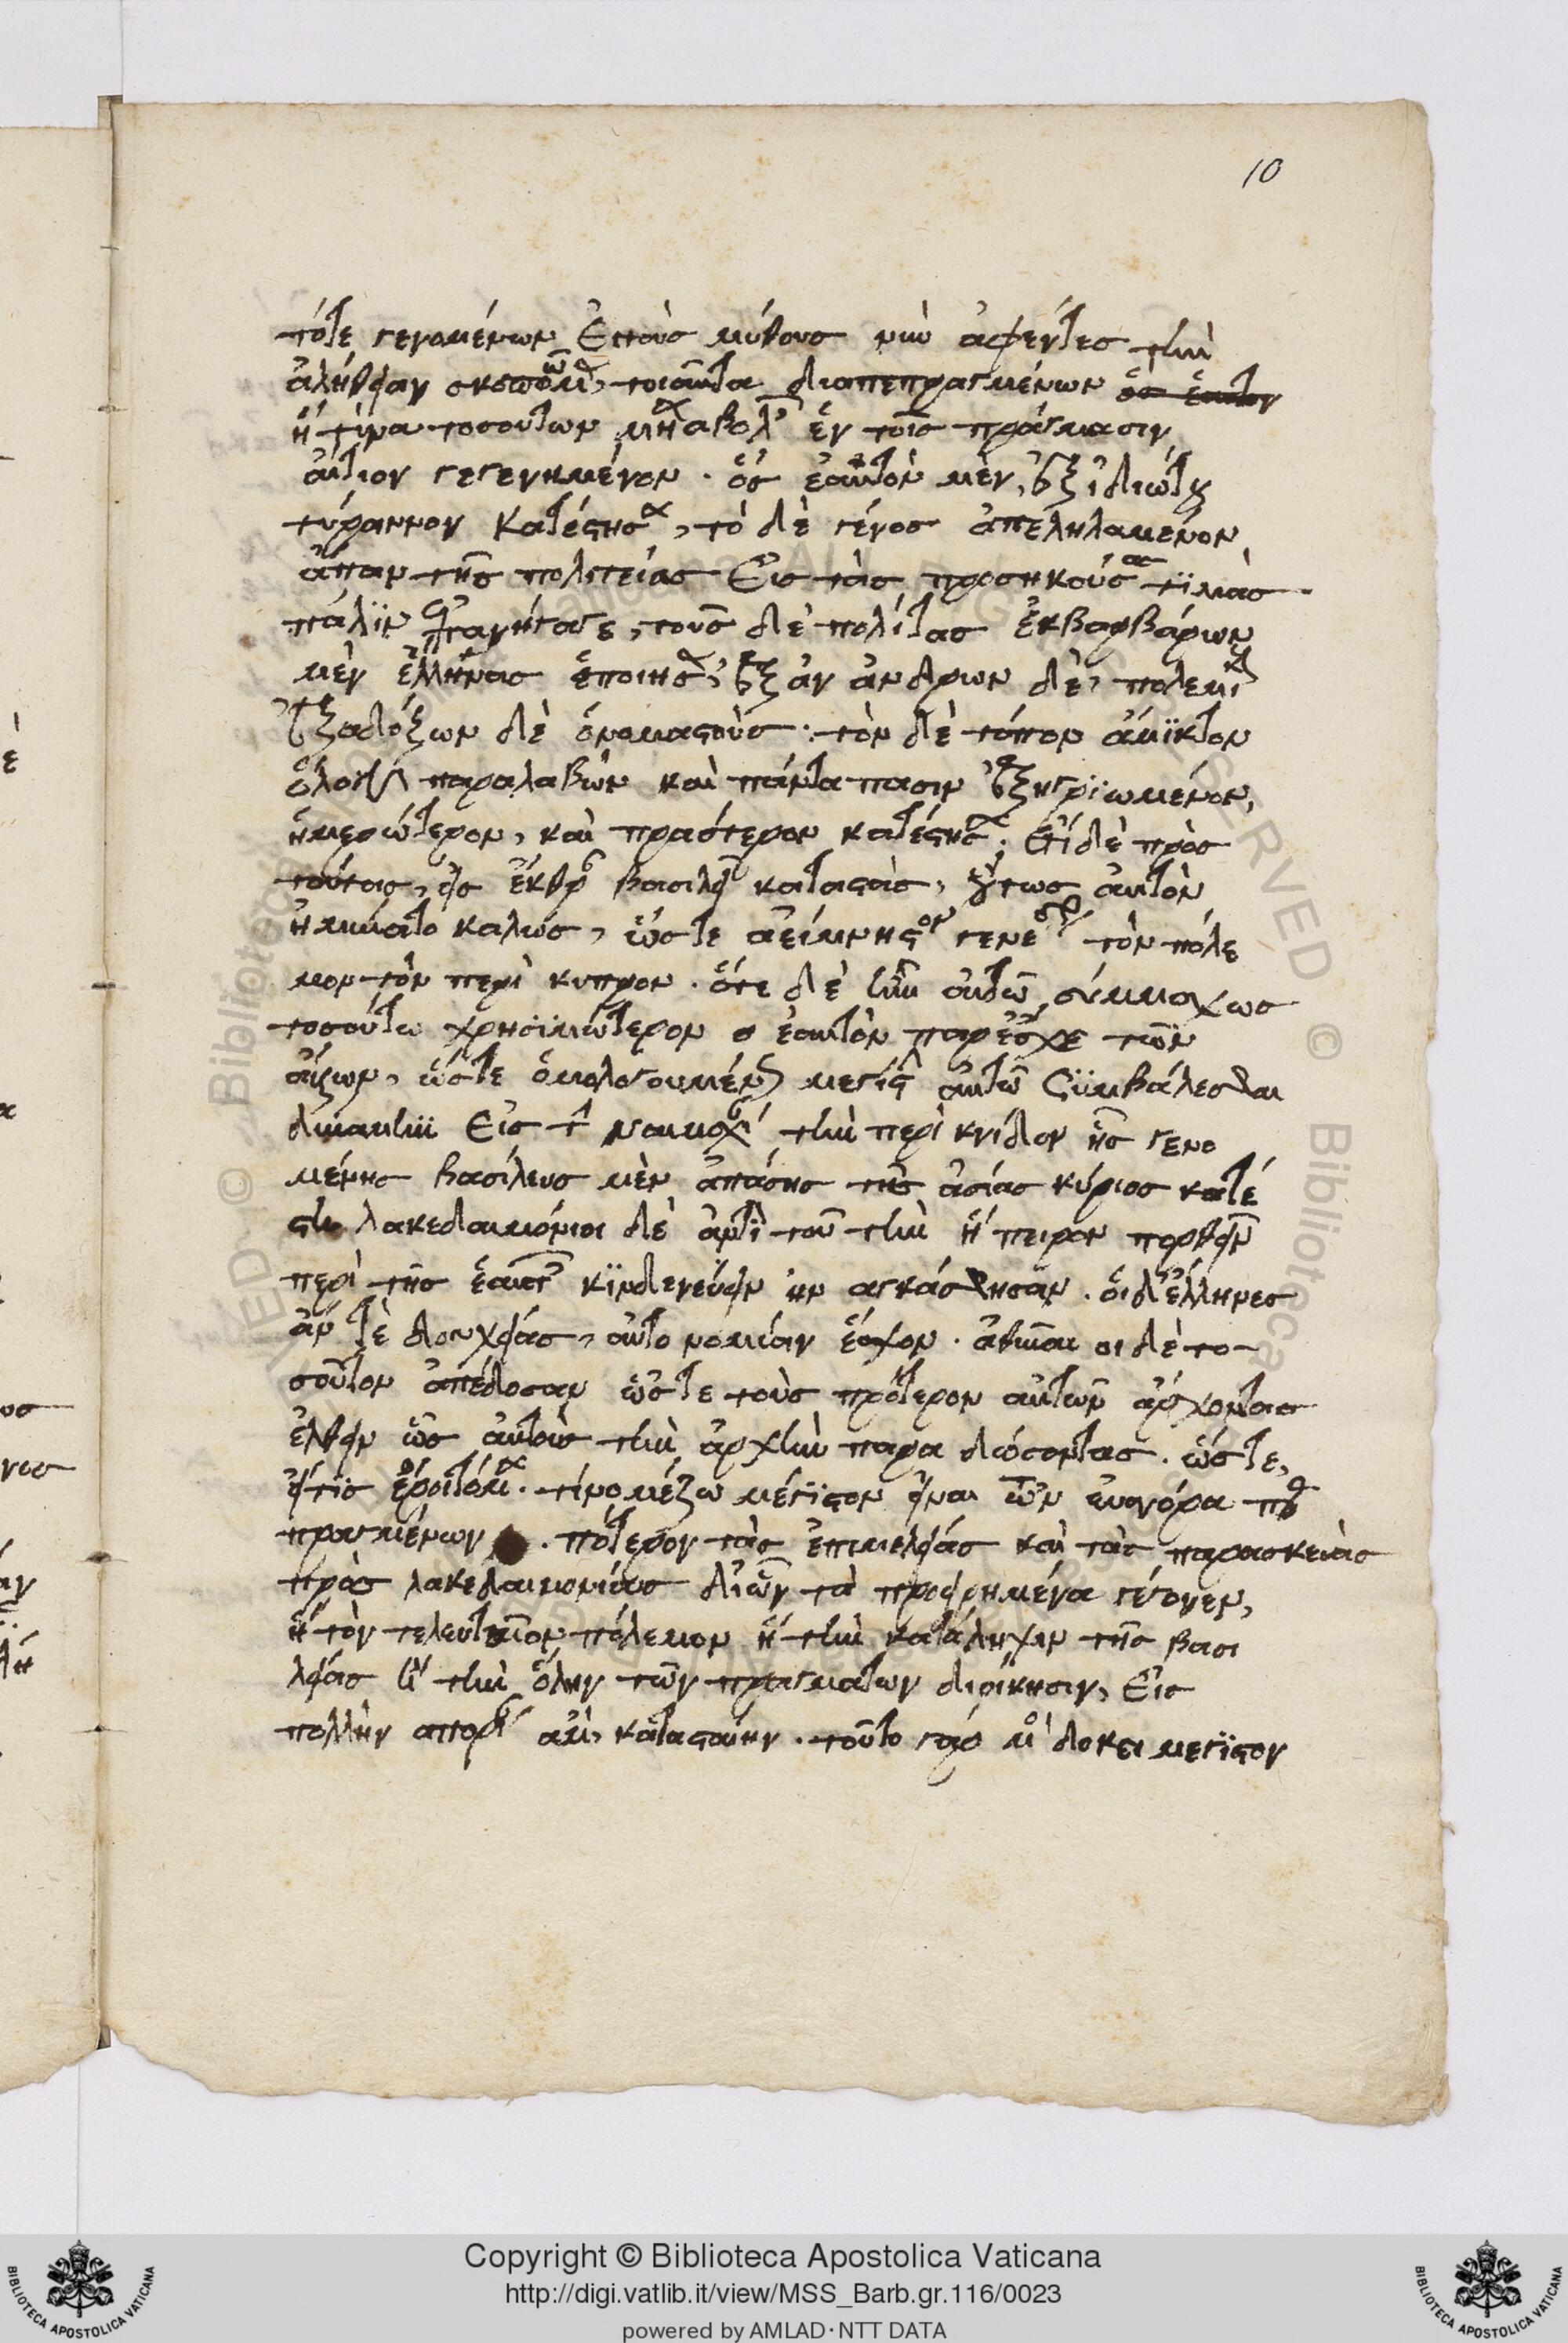 10
τότε γενομένων. Εἰ τοὺς μύθους νῦν ἀφέντες τὴν
ἀλήθειαν σκοποῖμεν, τοιαῦτα διαπεπραγμένων ὃς ἑαυτὸν
ἢ τίνα τοσούτων μεταβολῶν ἐν τοῖς πράγμασιν
αἴτιον γεγενημένον. ὃς ἑαυτὸν μὲν, ἐξ ἰδιώτου
τύραννον κατέστησε, τὸ δὲ γένος ἀπεληλαμένον
ἅπαν τῆς πολιτείας Εἰς τὰς προσηκούσας τϊμὰς
πάλϊν ἐπανήγαγε, τοὺς δὲ πολίτας ἐκ βαρβάρων
μὲν ἕλληνας ἐποίησεν, ἐξ ἀνάνδρων δὲ, πολεμικοὺς
ἐξ ἀδόξων δὲ ὀνομαστοὺς. τὸν δὲ τόπον ἄμϊκτον
ὅλον παραλαβὼν καὶ πάντα πασιν ἐξηγρϊωμένον,
ἡμερώτερον, καὶ πραότερον κατέστησεν. Ἔτι δὲ πρὸς
τούτοις, εἰς ἔχθραν βασιλεῖ καταστὰς, οὕτως αὐτὸν
ἠμύνατο καλῶς, ὥστε ἀείμνηστον γενέσθαι τὸν πόλε
μον τὸν περὶ κυπρον. ὅτε δὲ ἦν αὐτῶ σύμμαχως
τοσούτω χρησϊμώτερον σ ἑαυτὸν παρέσχε τῶν
ἄλλων, ὥστε ὁμολογουμένως μεγίστην αὐτῶ Σϋμβάλεσθαι
δύναμϊν Εἰς τὴν ναυμαχίαν τὴν περὶ κνίδον ἧς γενο
μένης βασίλευς μὲν ἁπάσης τῆς ἀσίας κύριος κατέ
στη λακεδαιμόνιοι δὲ ἀντὶ τοῦ τὴν ἤπειρον πορθεῖν
περὶ τῆς ἑαυτῶν κϊνδυνεύειν ἠναγκάσθησαν. οἱ δ' ἕλληνες
ἀντὶ δουλείας, αὐτονομίαν ἔσχον. ἀθηναῖοι δὲ το-
σοῦτον ἐπέδοσαν ὥστε τοὺς πρότερον αὐτῶν ἄρχοντας
ἐλθεῖν ὡς αὐτοὺς τὴν ἀρχὴν παρα δώσοντας. ὥστε,
εἴ τϊς ἔροιτό με. τί νομίζω μέγϊστον εἶναι τῶν ευαγόρα πε
πραγμένων. πότερον τὰς ἐπιμελείας καὶ τὰς παρασκευὰς
πρὸς λακεδαιμονίους δι' ὧν τὰ προειρημένα γέγονεν,
ἢ τὸν τελευταῖον πόλεμον ἢ τὴν κατάληψιν τῆς βασι
λείας ἢ τὴν ὅλην τῶν πραγμάτων διοίκησιν, Εἰς
πολλὴν αποριαν ἂν καταςαίην. τοῦτο γάρ μοὶ δοκει μεγϊστον
Copyright © Biblioteca Apostolica Vaticana
http://digi.vatlib.it/view/MSS_Barb.gr.116/0023
powered by AMLAD·NTT DATA